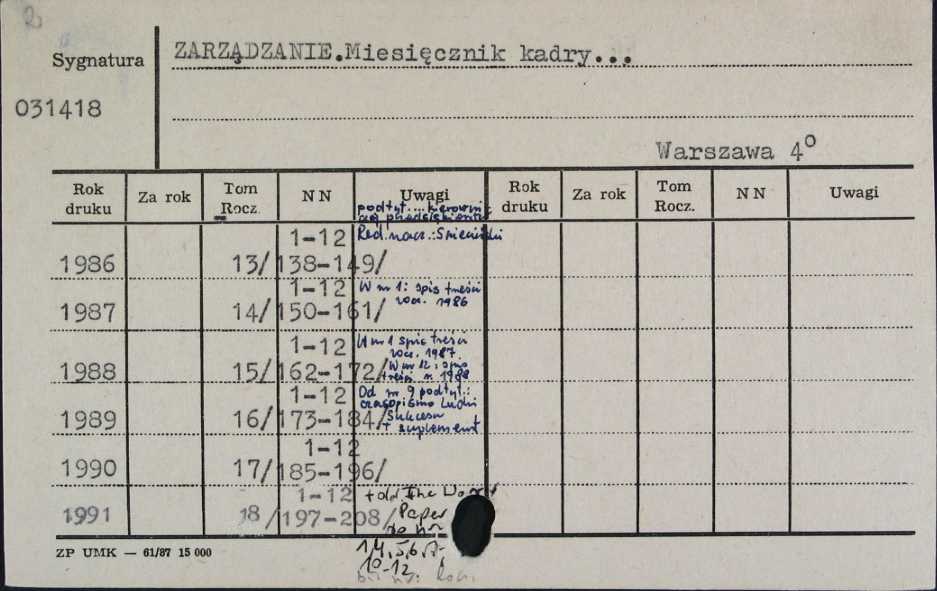 2
Sygnatura
031418
ZARZĄDZANIE.Miesięcznik kadry...
Warszawa 4°
Rok druku Za rok Tom Rocz. N N Uwagi Rok druku Za rok Tom Rocz. N N Uwagi
podtyt....
Red. nacz.:
1-12
1986 13/ 138-149/
1-12 W nr 1: spis treści
rocz. 1986
1987 14/ 150-161/
1-12 W nr 1 spis treści
rocz. 1987.
1988 15/ 162-172/ W nr 12: spis
treści r. 1988
1-12 Od nr 9 podtyt.:
czasopismo Ludzi
1989 16/ 173-184/ Sukcesu
+ suplement
1-12
1990 17/ 185-196/
1-12 + dod The
Paper
1991 18/ 197-208/
do nr
1,4,5,6,7,
10-12
ZP UMK — 61/87 15 000